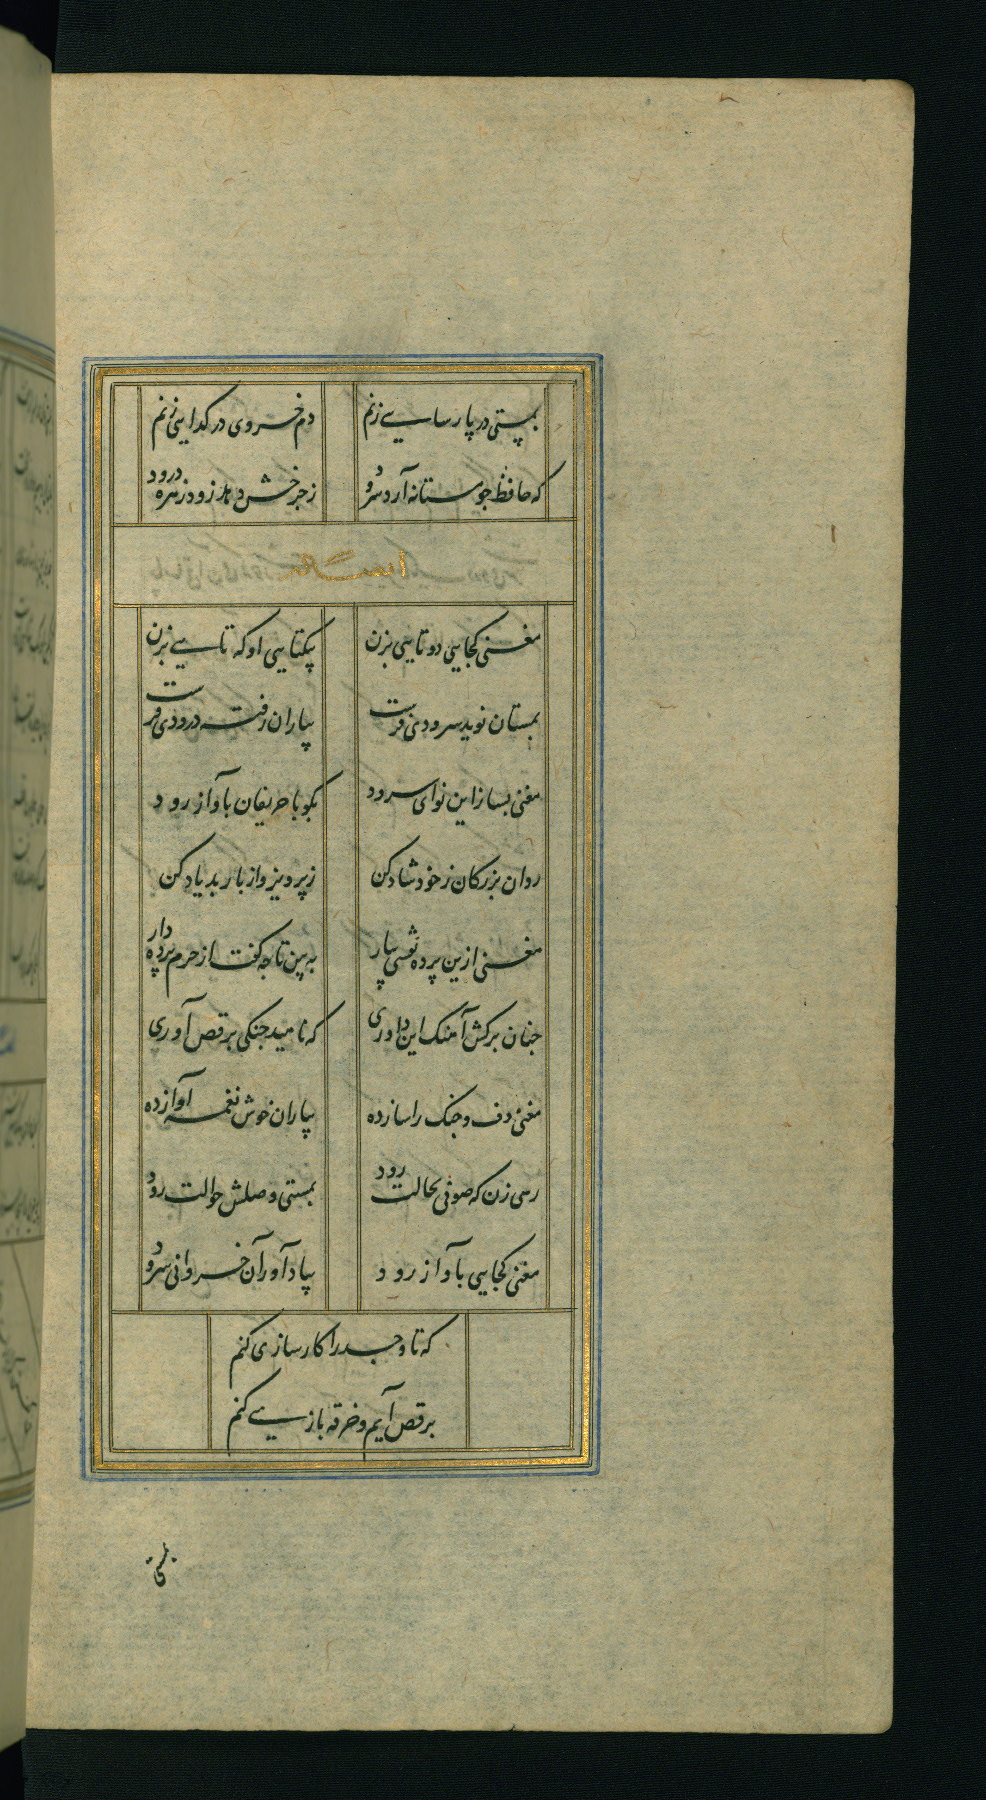 بمستی در پارسایی زنم دم خسروی در کدایی زنم
که حافظ جو مستانه آرد سرود ز جرخش دهد زود زهره درود
مغنی کجایی دو تایی بزن بیکتایی او که تایی بزن
بمستان نوید سرودی فرست بیاران رفته درودی فرست
مغنی بساز این نوای سرود بکو با حریفان باواز رود
روان بزرکان ز خود شاد کن ز پرویز و از باربد یاد کن
مغنی ازین پرده نقشی بیار ببین تا چه کفت از حرم پرده دار
جنان برکش آهنک این داوری که ناهید جنکی برقص آوری
مغنی دف و جنک را ساز ده بیاران خوش نغمه آواز ده
رهی زن که صوفی بحالت رود بمستی وصلش حوالت رود
مغنی کجایی باواز رود بیاد آور آن خسروانی سرود
که تا وجد را کارسازی کنم
برقص آیم و خرقه بازی کنم